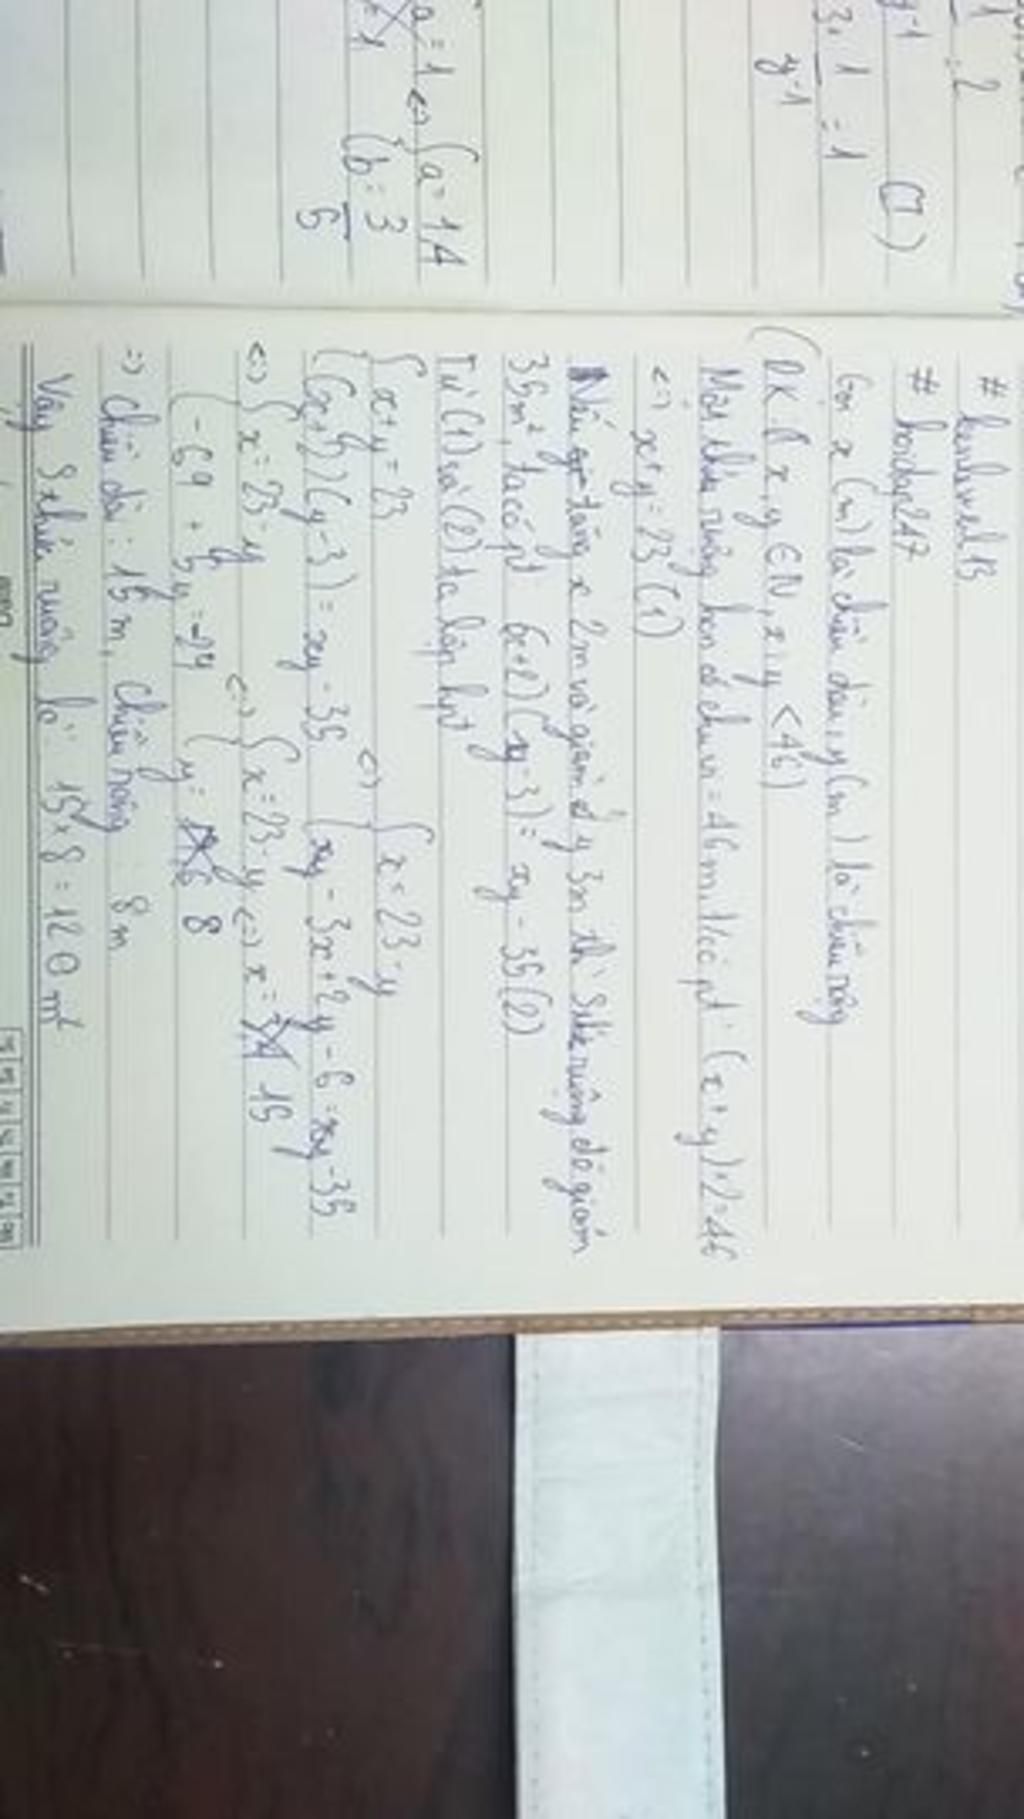 1 = 2
y-1 (I)
3. 1 = 1
y-1
a = 1 <=> { a = 1A
1 { b = 3
5
# kenhvvel13
# hoidap247
Gọi x (m) là chiều dài, y (m) là chiều rộng
(ĐK x, y ∈ N, x, y < 46)
Một thửa ruộng hcn có chu vi = 46m, ta có pt: (x+y).2=46
<=> x+y = 23 (1)
Nếu tăng x 2m và giảm y 3m thì S thửa ruộng đó giảm
35m², ta có pt (x+2)(y-3) = xy - 35 (2)
Từ (1) và (2) ta lập hpt
{ x+y = 23 <=> { x = 23-y
{ (x+2)(y-3) = xy - 35 { xy - 3x + 2y - 6 = xy - 35
<=> { x = 23-y <=> { x = 23-y <=> x = 15
{ -69 + 5y = -29 { y = 8
=> Chiều dài: 15m, chiều rộng: 8m
Vậy S thửa ruộng là: 15 x 8 = 120 m²